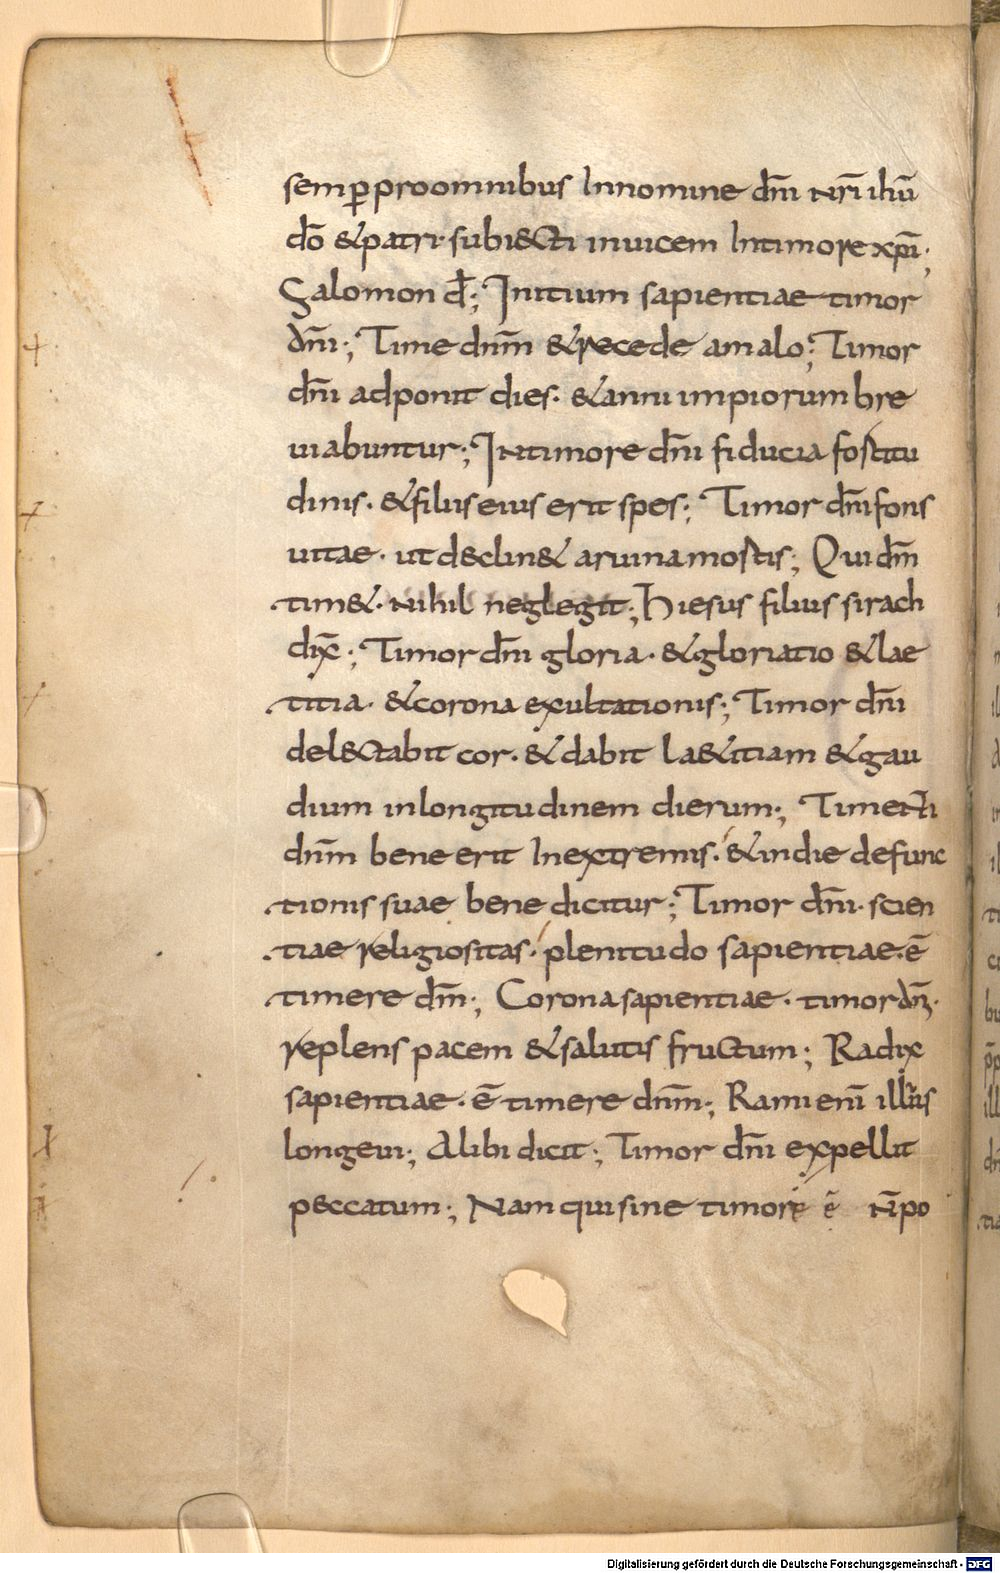 semp̲ proomnibus Innomine dn̄i nr̄i ihū
dō &patri· subi&cti inuicem Intimore xp̄i·;
Salomon dt̄·; Initium sapientiae timor
dn̄i·; Time dnm̄ &recede amalo·; Timor
dn̄i adponit dies· &anni impiorum bre
uiabuntur·; Intimore dn̄i fiducia fortitu
dinis· &filiis eius erit spes·; Timor dn̄i fons
uitae· ut d&clin& aruina mortis·; Qui dm̄
tim&· nihil neglegit·; Hiesus filius sirach
dix̄·; Timor dn̄i gloria· &gloriatio &lae
titia· &corona exultationis·; Timor dn̄i
del&ctabit cor· &dabit la&itiam &gau
dium inlongitudinem dierum·; Timenti
dnm̄ bene erit Inextremis· &indie defunc
tionis suae benedicitur·; Timor dn̄i· scien
tiae religiositas· plenitudo sapientiae· ē
timere dm̄·; Corona sapientiae· timor dn̄i·
replens pacem &salutis fructum·; Radix
sapientiae· ē timere dnm̄·; Rami enī illius
longeui·; Alibi dicit·; Timor dn̄i expellit
peccatum·; Nam qui sine timore ē n̄ po
Digitalisierung gefördert durch die Deutsche Forschungsgemeinschaft - DFG